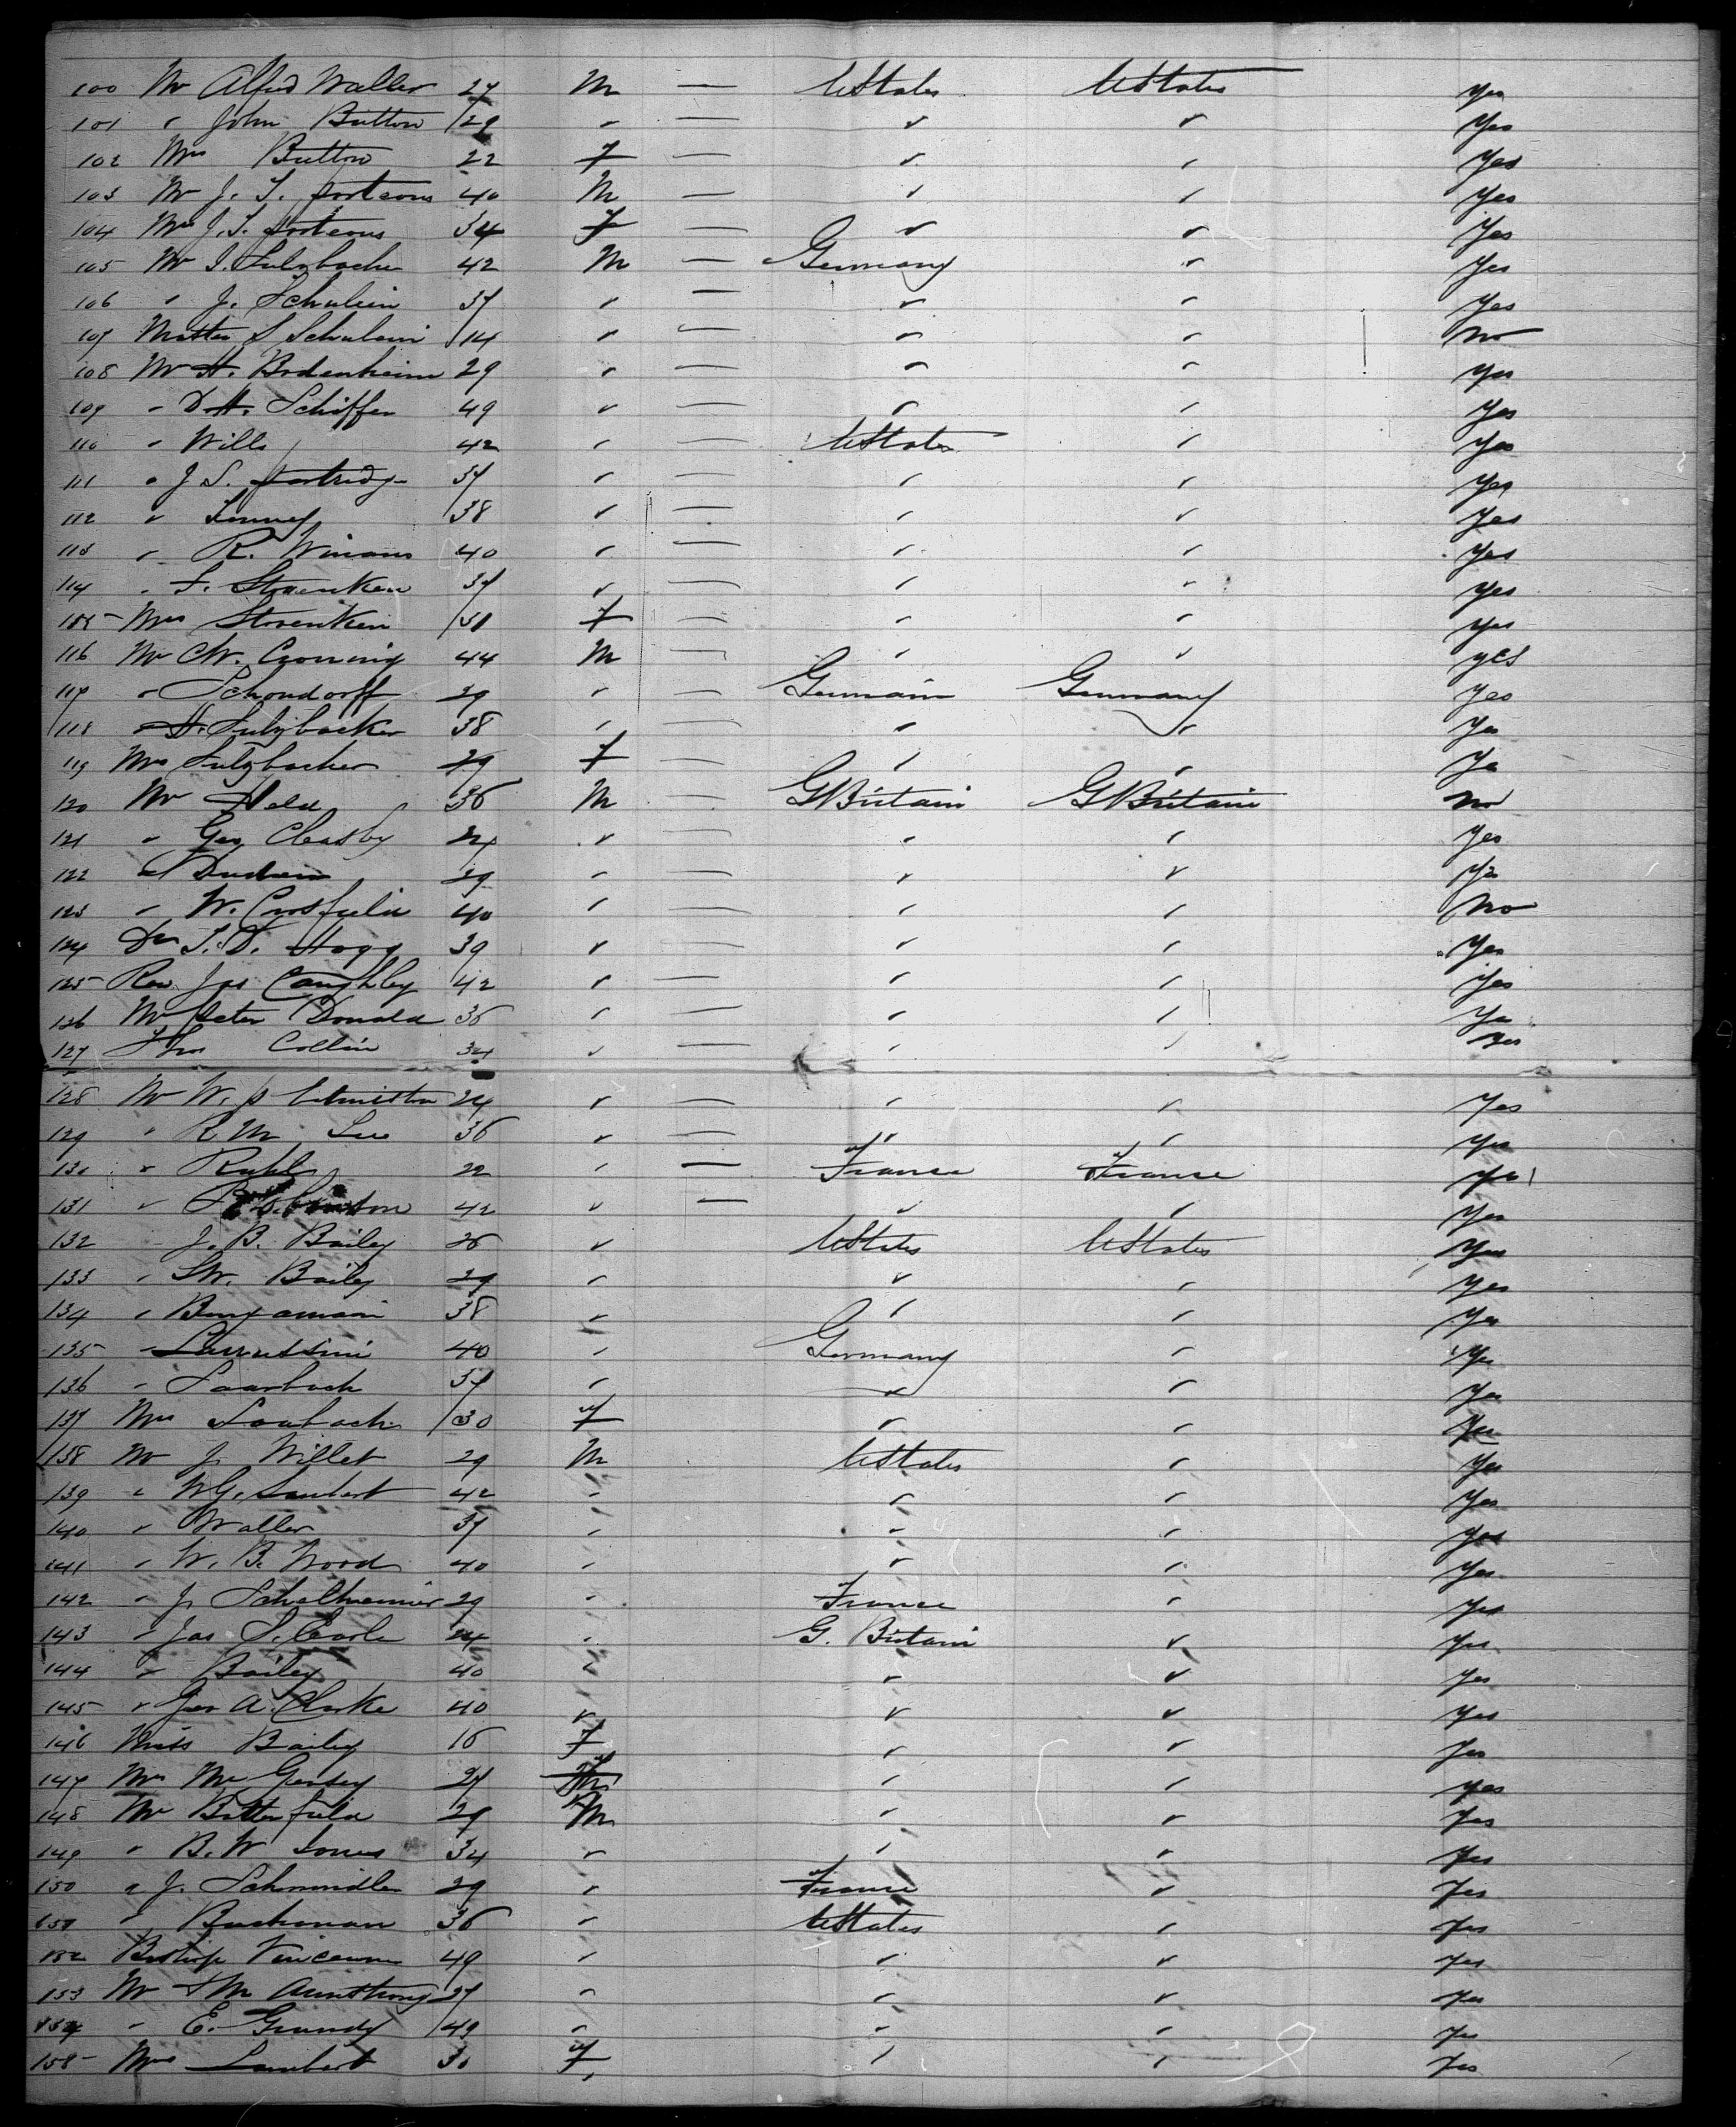 100 Mr Alfred Waller 27 M — UStates UStates Yes
101 " John Britton 29 " — " " Yes
102 Mrs Britton 22 F — " " Yes
103 Mr J. T. Porteous 40 M — " " Yes
104 Mrs J. T. Porteous 34 F — " " Yes
105 Mr I. Sulzbacher 42 M — Germany " Yes
106 " J. Schulein 37 " — " " Yes
107 Master S Schulein 14 " — " " No
108 Mr H. Bodenheim 29 " — " " Yes
109 " D. H. Schiffer 49 " — " " Yes
110 " Wills 42 " — UStates " Yes
111 " J S. Partridge 37 " — " " Yes
112 " 38 " — " " Yes
113 " R. Winans 40 " — " " Yes
114 " F. Stoenken 37 " — " " Yes
115 Mrs Stoenken 31 F — " " Yes
116 Mr CW. 44 M — " " yes
117 " Schondorff 29 " — Germain Germany Yes
118 " H. Sulzbacher 38 " — " " Yes
119 Mrs Sulzbacher 29 F — " " Ye
120 Mr Held 36 M — GBritain GBritain No
121 " Geo Cleasby 24 " — " " Yes
122 " 29 " — " " Yes
123 " W. Crosfield 40 " — " " No
124 Dr T. D. Hogg 39 " — " " Yes
125 Rev. Jas Caughley 42 " — " " Yes
126 Mr Peter Donald 36 " — " " Ye
127 Thos Collin 34 " — " " Yes
128 Mr W. P 24 " — " " Yes
129 " R M Lee 36 " — " " Yes
130 " Ruhl 22 " — France France Yes
131 " 42 " — " " Yes
132 " J. B. Bailey 26 " UStates UStates Yes
133 " SW. Bailey 29 " " " Yes
134 " Benjamin 38 " " " Yes
135 " 40 " Germany " Yes
136 " Saarbach 37 " " " Yes
137 Mrs Saarbach 30 F " " Yes
138 Mr J Willet 29 M UStates " Yes
139 " WG. Lambert 42 " " " Yes
140 " Waller 37 " " " Yes
141 " W. B. Wood 40 " " " Yes
142 " J. 29 " France " Yes
143 " Jas S. Earle 24 " G. Britain " Yes
144 " Bailey 40 " " " Yes
145 " Geo A. Clarke 40 " " " Yes
146 Miss Bailey 16 F " " Yes
147 Mrs 27 F " " Yes
148 Mr Butterfield 29 M " " Yes
149 " B. W Jones 34 " " " Yes
150 " J. Schmidlin 29 " France " Yes
151 " Buckman 36 " UStates " Yes
152 Bishop 49 " " " Yes
153 Mr Armstrong 27 " " " Yes
154 " E. Grundy 49 " " " Yes
155 Mrs Lambert 30 F " " Yes